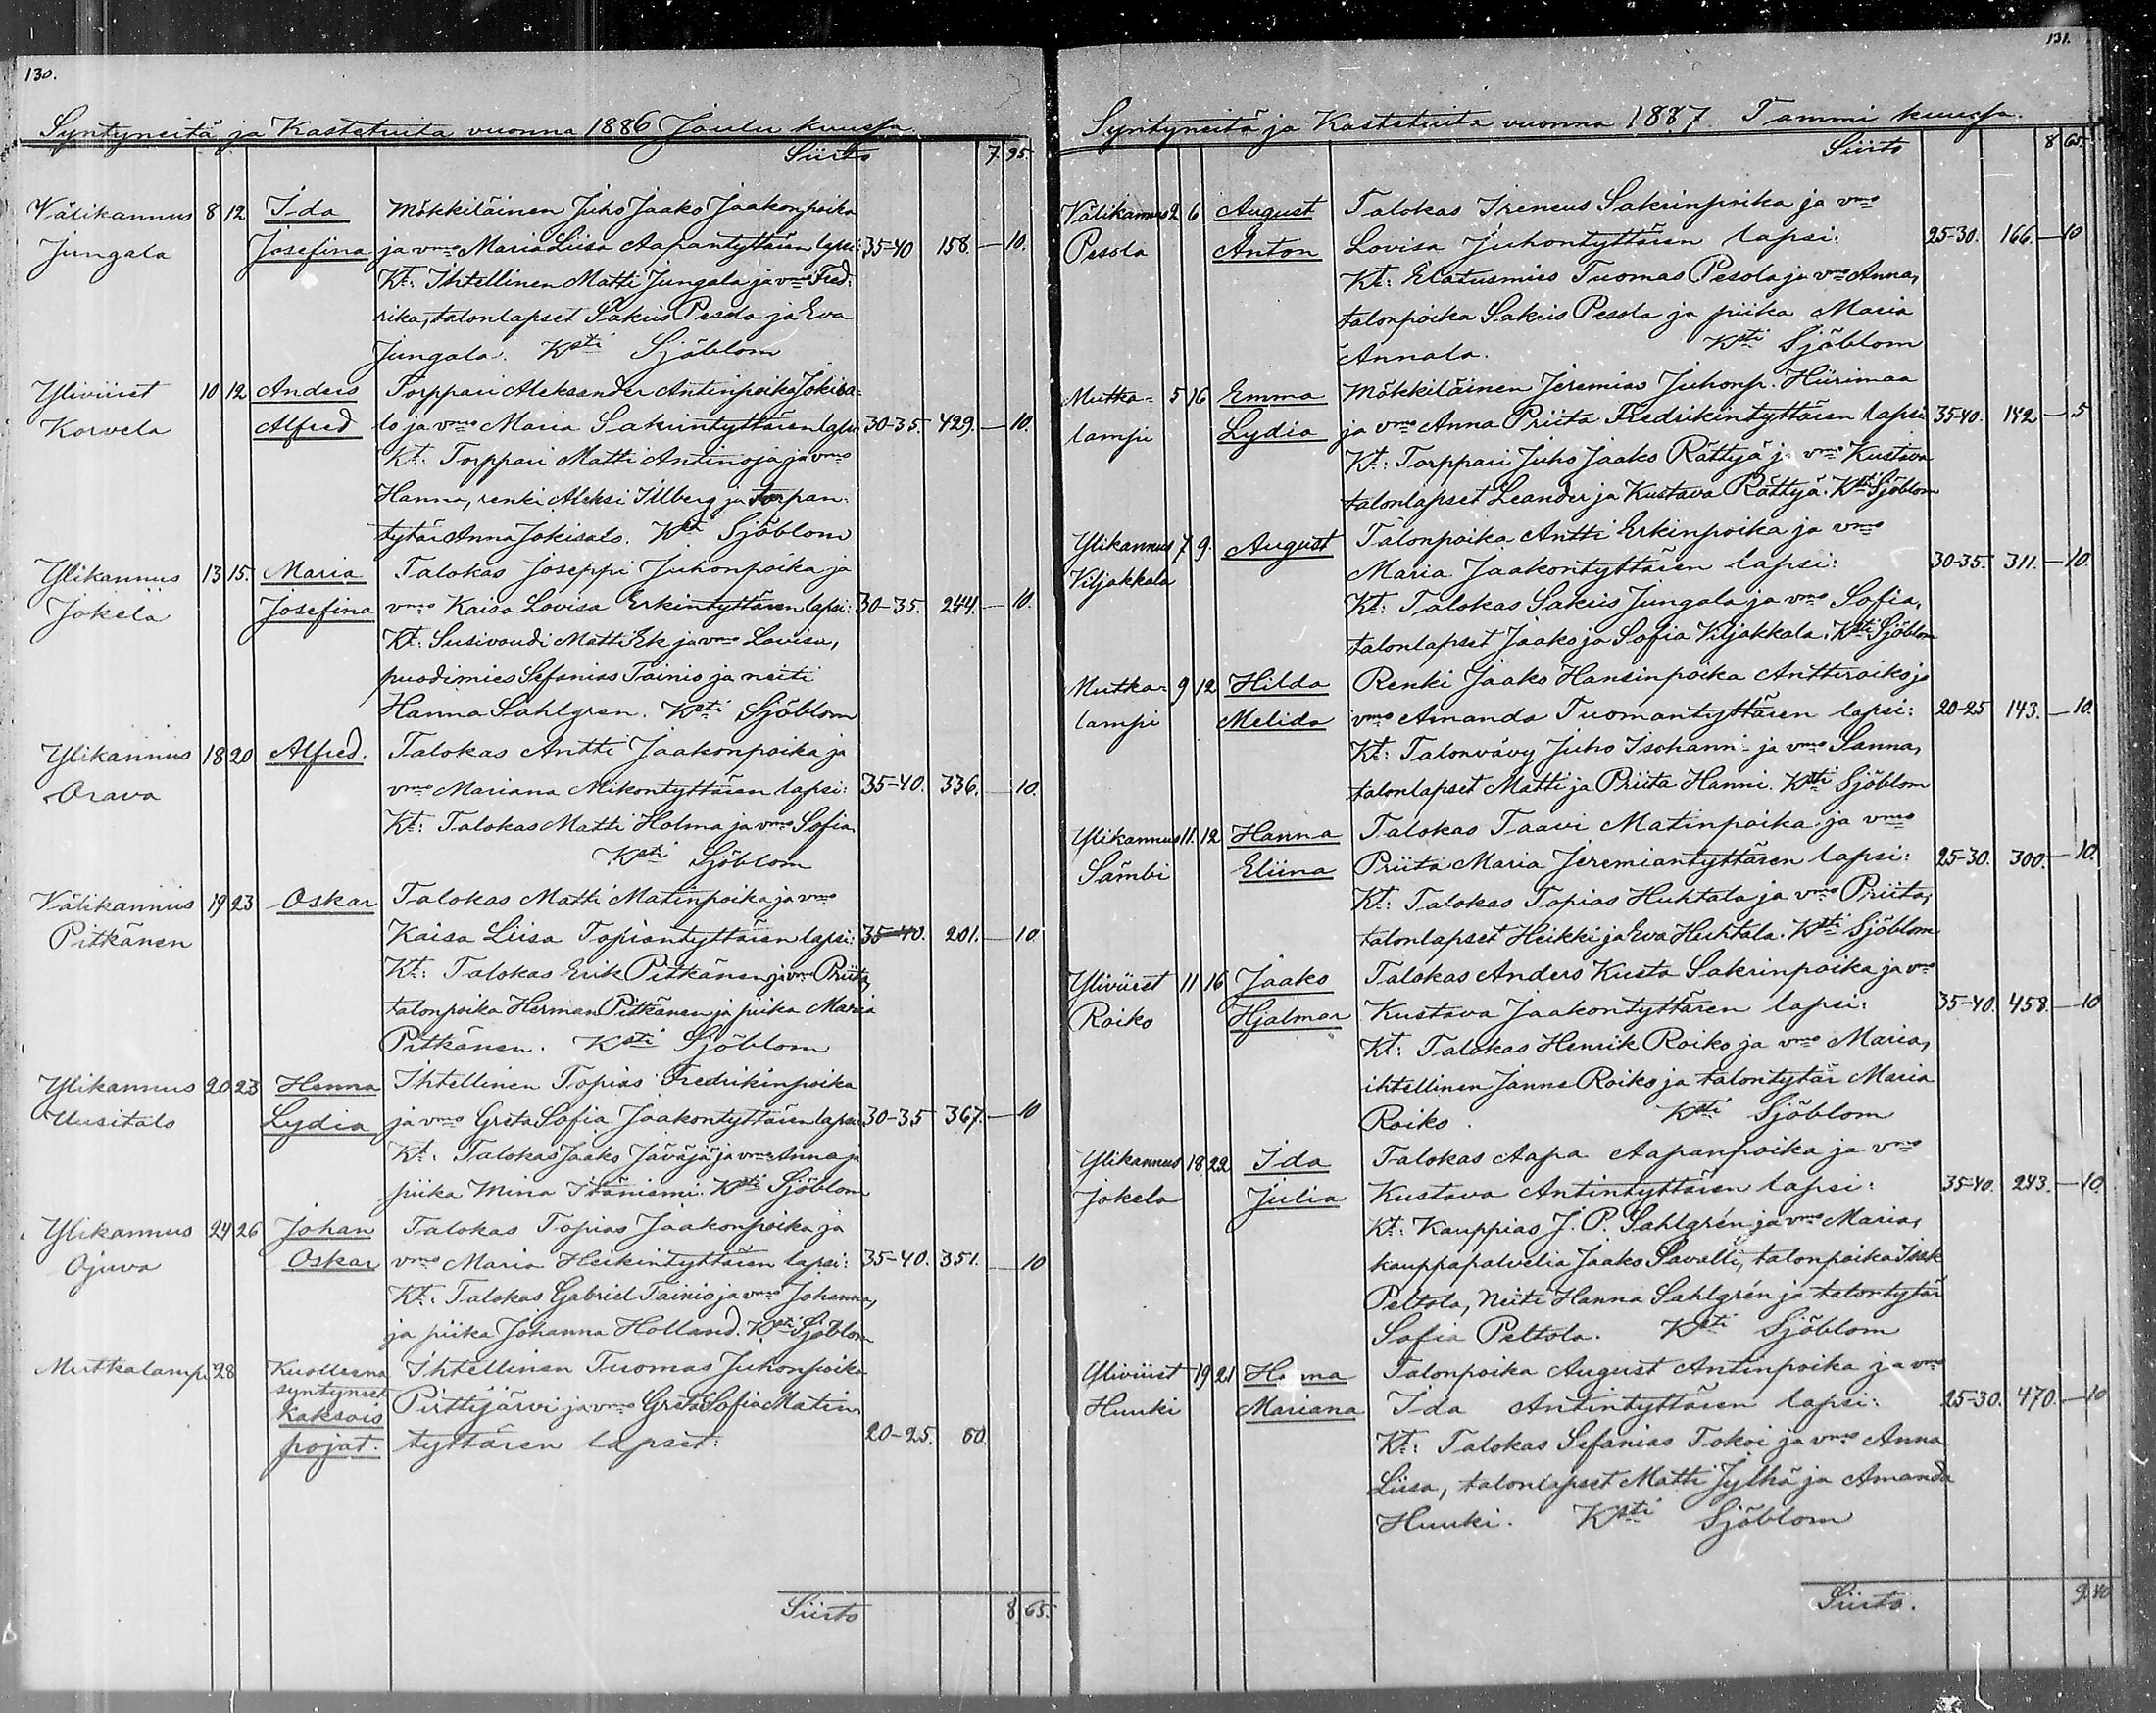 130.
Syntyneitä ja Kastetuita vuonna 1886 Joulu kuussa.
Siirto 7. 95.
Välikannus 8 12 Ida Mökkiläinen Juho Jaako Jaakonpoika
Jungala Josefina ja vmo Maria Liisa Aapantyttären lapsi: 35-40 158. — 10.
Kt: Ihtellinen Matti Jungala ja vmo Fred:
rika, talonlapset Sakris Pesola ja Eva
Jungala. Ksti Sjöblom
Yliviirret 10 12 Anders Torppari Aleksander Antinpoika Jokisa-
Korvela Alfred lo ja vmo Maria Sakrintyttären lapsi 30-35. 429. — 10.
Kt: Torppari Matti Antinoja ja vmo
Hanna, renki Aleksi Illberg ja torpan-
tytär Anna Jokisalo. Ksti Sjöblom
Ylikannus 13 15. Maria Talokas Joseppi Juhonpoika ja
Jokela Josefina vmo Kaisa Lovisa Erkintyttären lapsi: 30-35. 244. — 10.
Kt: Susivoudi Matti Ek ja vmo Lovisa,
puodimies Sefanias Tainio ja neiti
Hanna Sahlgren. Ksti Sjöblom
Ylikannus 18 20 Alfred. Talokas Antti Jaakonpoika ja
Orava vmo Mariana Mikontyttären lapsi: 35-40. 336. — 10.
Kt: Talokas Matti Holma ja vmo Sofia.
Ksti Sjöblom
Välikannus 19 23 Oskar Talokas Matti Matinpoika ja vmo
Pitkänen Kaisa Liisa Topiantyttären lapsi: 35-40. 201. — 10
Kt: Talokas Erik Pitkänen ja vmo Priita,
talonpoika Herman Pitkänen ja piika Maria
Pitkänen. Ksti Sjöblom
Ylikannus 20 23 Henna Ihtellinen Topias Fredrikinpoika
Uusitalo Lydia ja vmo Greta Sofia Jaakontyttären lapsi 30-35 367. — 10
Kt: Talokas Jaako Jäväjä ja vmo Anna ja
piika Mina Itäniemi. Ksti Sjöblom
Ylikannus 24 26 Johan Talokas Topias Jaakonpoika ja
Ojuva Oskar vmo Maria Heikintyttären lapsi: 35-40. 351. — 10
Kt: Talokas Gabriel Tainio ja vmo Johanna,
ja piika Johanna Holland. Ksti Sjöblom
Mutkalampi 28 Kuolleena Ihtellinen Tuomas Juhonpoika
syntyneet
Kaksois Pirttijärvi ja vmo Greta Sofia Matin
pojat. tyttären lapset: 20-25. 60.
Siirto 8 65.
131.
Syntyneitä ja Kastetuita vuonna 1887. Tammi kuussa.
Siirto 8 65.
Välikannus 2 6 August Talokas Ireneus Sakrinpoika ja vmo
Pesola Anton Lovisa Juhontyttären lapsi: 25-30. 166. — 10
Kt: Elatusmies Tuomas Pesola ja vmo Anna,
talonpoika Sakris Pesola ja piika Maria
Annala. Ksti Sjöblom
Mutka- 5 16 Emma Mökkiläinen Jeremias Juhonp. Hiirimaa
lampi Lydia ja vmo Anna Priita Fredrikintyttären lapsi 35-40. 142 — 5
Kt: Torppari Juho Jaako Rättyä ja vmo Kustava
talonlapset Leander ja Kustava Rättyä. Ksti Sjöblom
Ylikannus 7 9. August Talonpoika Antti Erkinpoika ja vmo
Viljakkala Maria Jaakontyttären lapsi: 30-35. 311. — 10.
Kt: Talokas Sakris Jungala ja vmo Sofia,
talonlapset Jaako ja Sofia Viljakkala. Ksti Sjöblom
Mutka- 9 12 Hilda Renki Jaako Hansinpoika Anttiroiko ja
lampi Melida vmo Amanda Tuomantyttären lapsi: 20-25 143. — 10.
Kt: Talonvävy Juho Isohanni ja vmo Sanna,
talonlapset Matti ja Priita Hanni. Ksti Sjöblom
Ylikannus 11. 12 Hanna Talokas Taavi Matinpoika ja vmo
Sämbi Eliina Priita Maria Jeremiantyttären lapsi: 25-30. 300. — 10.
Kt: Talokas Topias Huhtala ja vmo Priita,
talonlapset Heikki ja Eva Huhtala. Ksti Sjöblom
Yliviirret 11 16 Jaako Talokas Anders Kusta Sakrinpoika ja vmo
Roiko Hjalmar Kustava Jaakontyttären lapsi: 35-40. 458. — 10
Kt: Talokas Henrik Roiko ja vmo Maria,
ihtellinen Janne Roiko ja talontytär Maria
Roiko. Ksti Sjöblom
Ylikannus 18. 22 Ida Talokas Aapa Aapanpoika ja vmo
Jokela Julia Kustava Antintyttären lapsi: 35-40. 243. — 10.
Kt: Kauppias J. P. Sahlgrén ja vmo Maria,
kauppapalvelia Jaako Savalli, talonpoika Isak
Peltola, Neiti Hanna Sahlgrén ja talontytär
Sofia Peltola. Ksti Sjöblom
Yliviirret 19 21 Hanna Talonpoika August Antinpoika ja vmo
Huuki Mariana Ida Antintyttären lapsi: 25-30. 470. — 10
Kt: Talokas Sefanias Tokoi ja vmo Anna
Liisa, talonlapset Matti Jylhä ja Amanda
Huuki. Ksti Sjöblom
Siirto. 9. 40